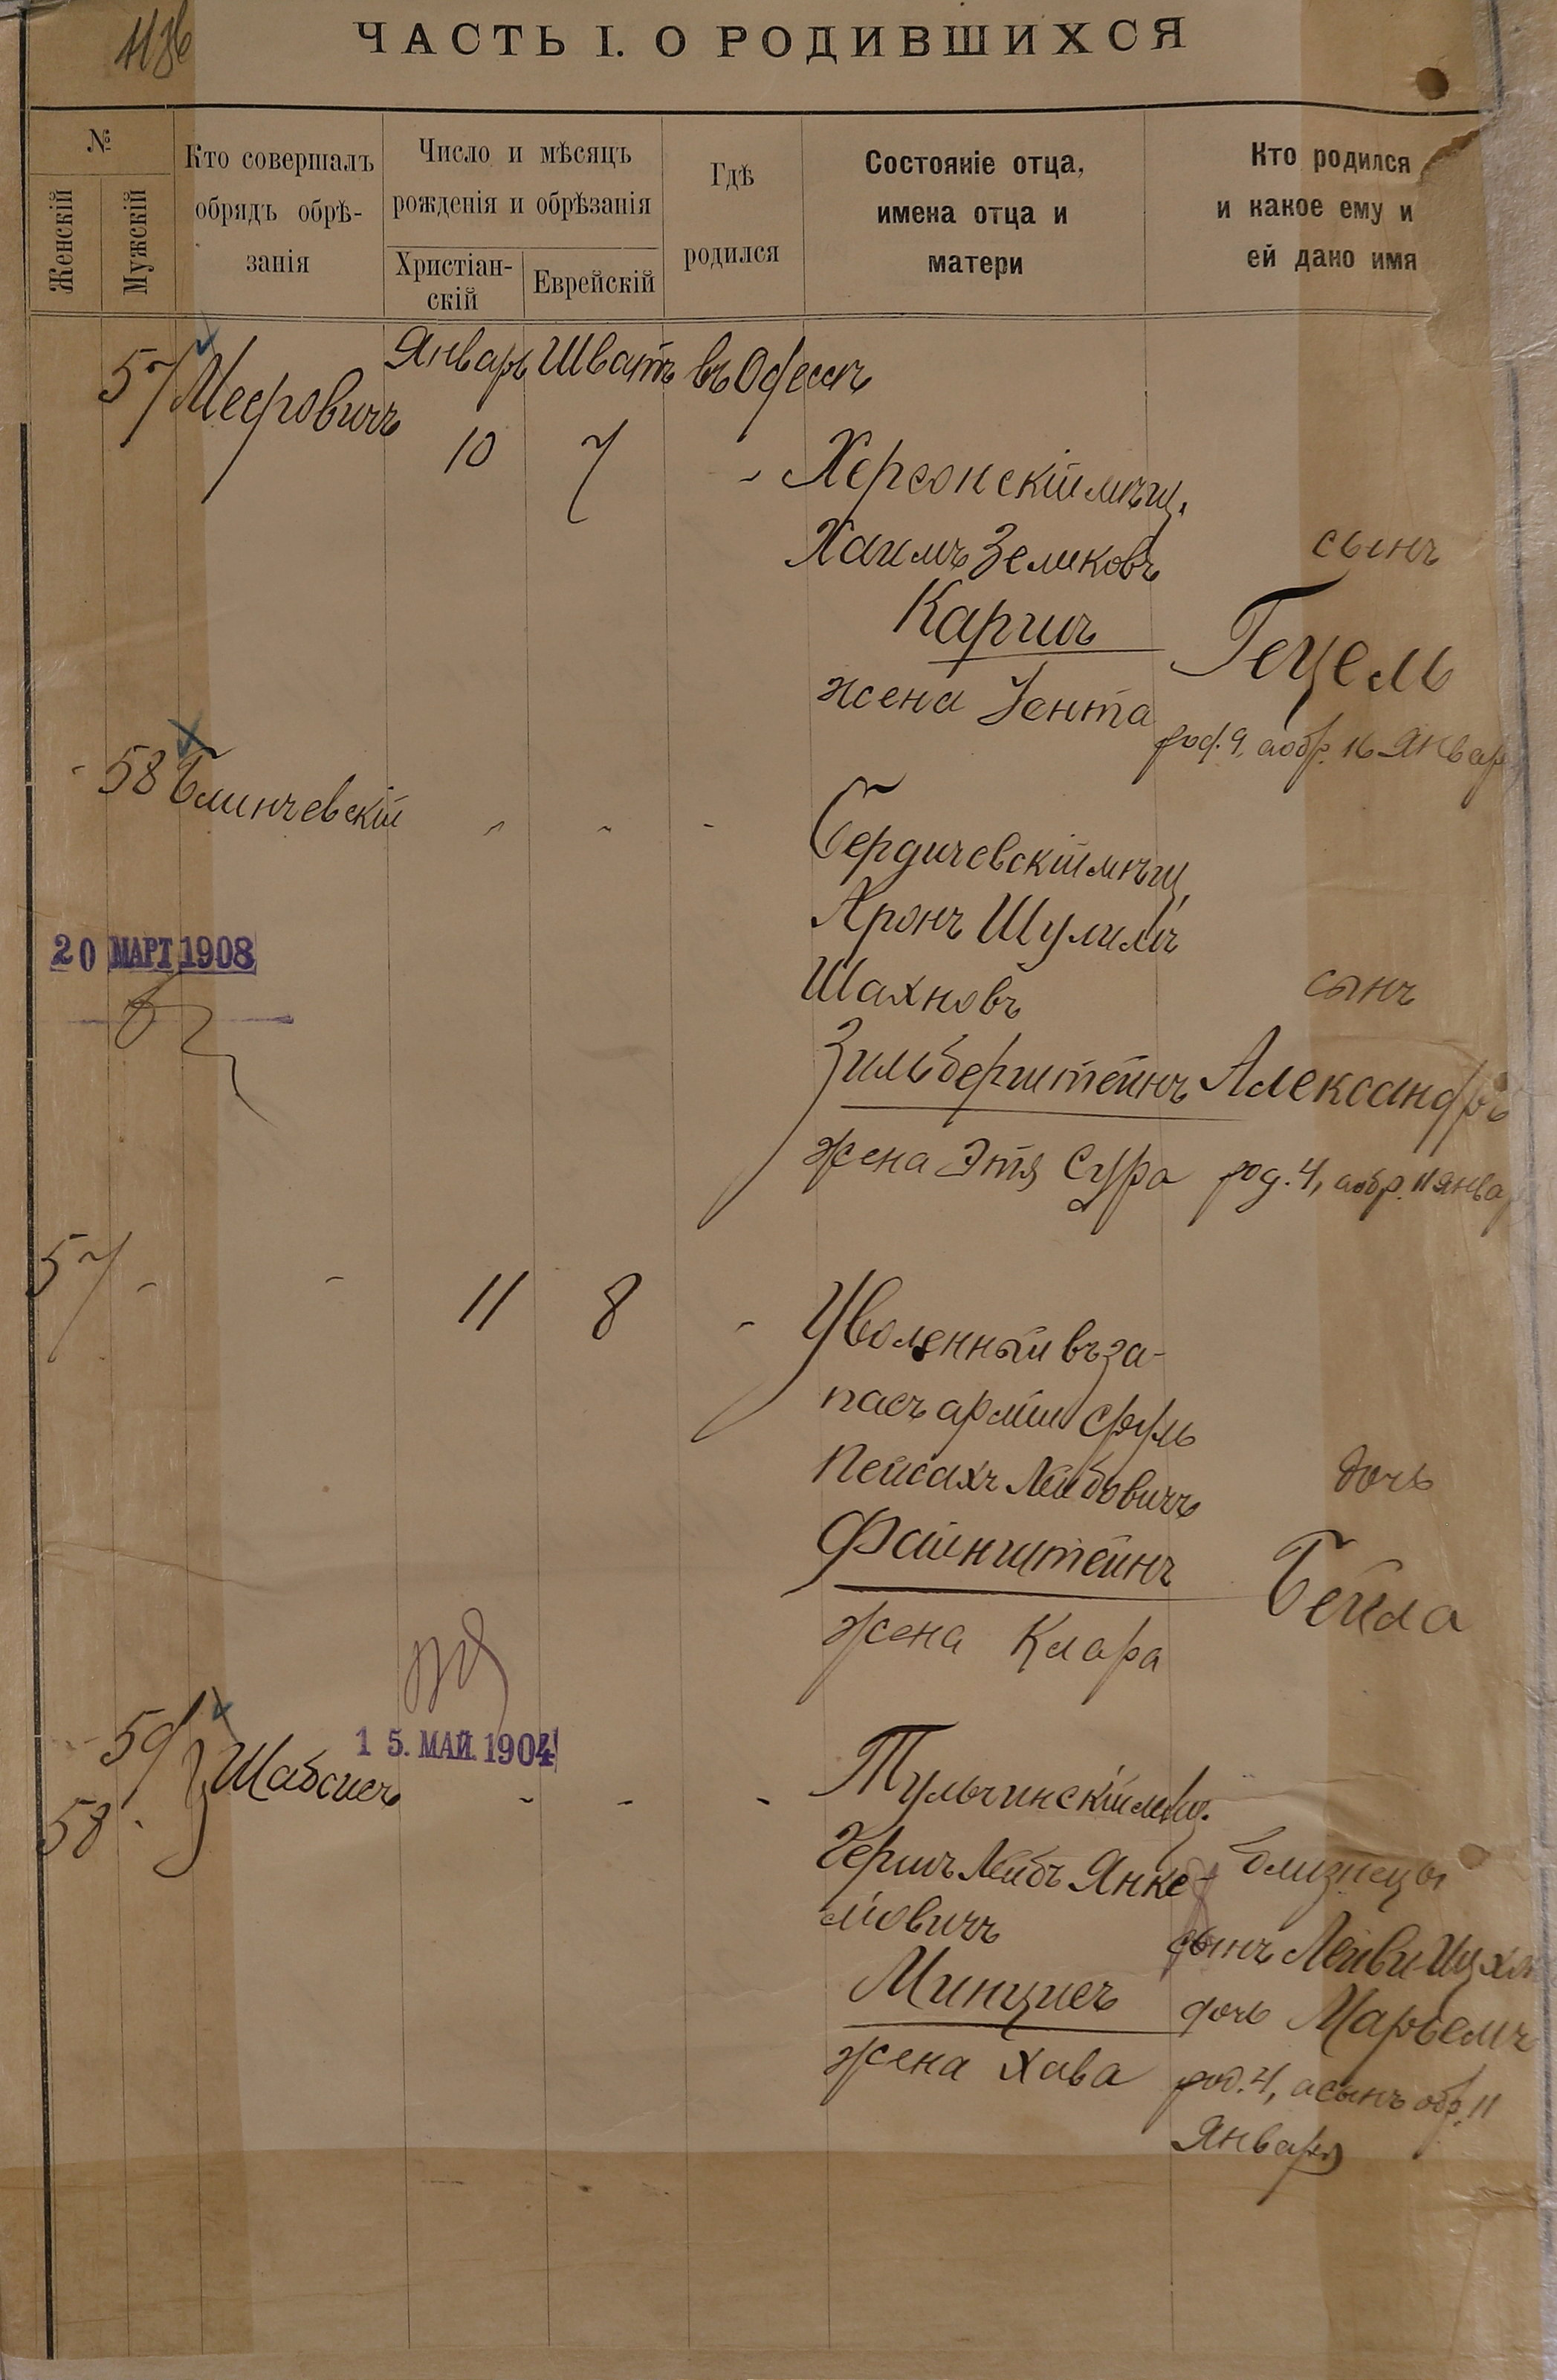 ЧАСТЬ I. О РОДИВШИХСЯ
№
Женскій
Мужскій
Кто совершалъ
обрядъ обрѣ-
занія
Число и мѣсяцъ
рожденія и обрѣзанія
Христіан-
скій
Еврейскій
Гдѣ
родился
Состояніе отца,
имена отца и
матери
Кто родился
и какое ему и
ей дано имя
Январь Шватъ въ Одессѣ
57 Мееровичъ
10 7 - Херсонскій мѣщ.
Хаимъ Зеликовъ
Каринъ
жена Іента
сынъ
Гецель
род. 9, а обр. 16 Января
- 58 Блинчевскій " " -
Бердичевскій мѣщ.
Аронъ Шулимъ
Шахновъ
Зильберштейнъ
жена Этя Сура
сынъ
Александръ
род. 4, а обр. 11 янва
20 МАРТ 1908
57 - - 11 8 -
Уволенный въ за-
пасъ арміи
Пейсахъ Лейбовичъ
Файнштейнъ
жена Клара
дочь
Бейла
15. МАЙ. 1904
- 59
58 -
Шабсисъ - - -
Тульчинскій мѣщ.
Гершъ Лейбъ Янке-
лiовичъ
Минцисъ
жена Хава
близнецы
сынъ Лейви
дочь Марьемъ
род. 4, а сынъ обр. 11
Января